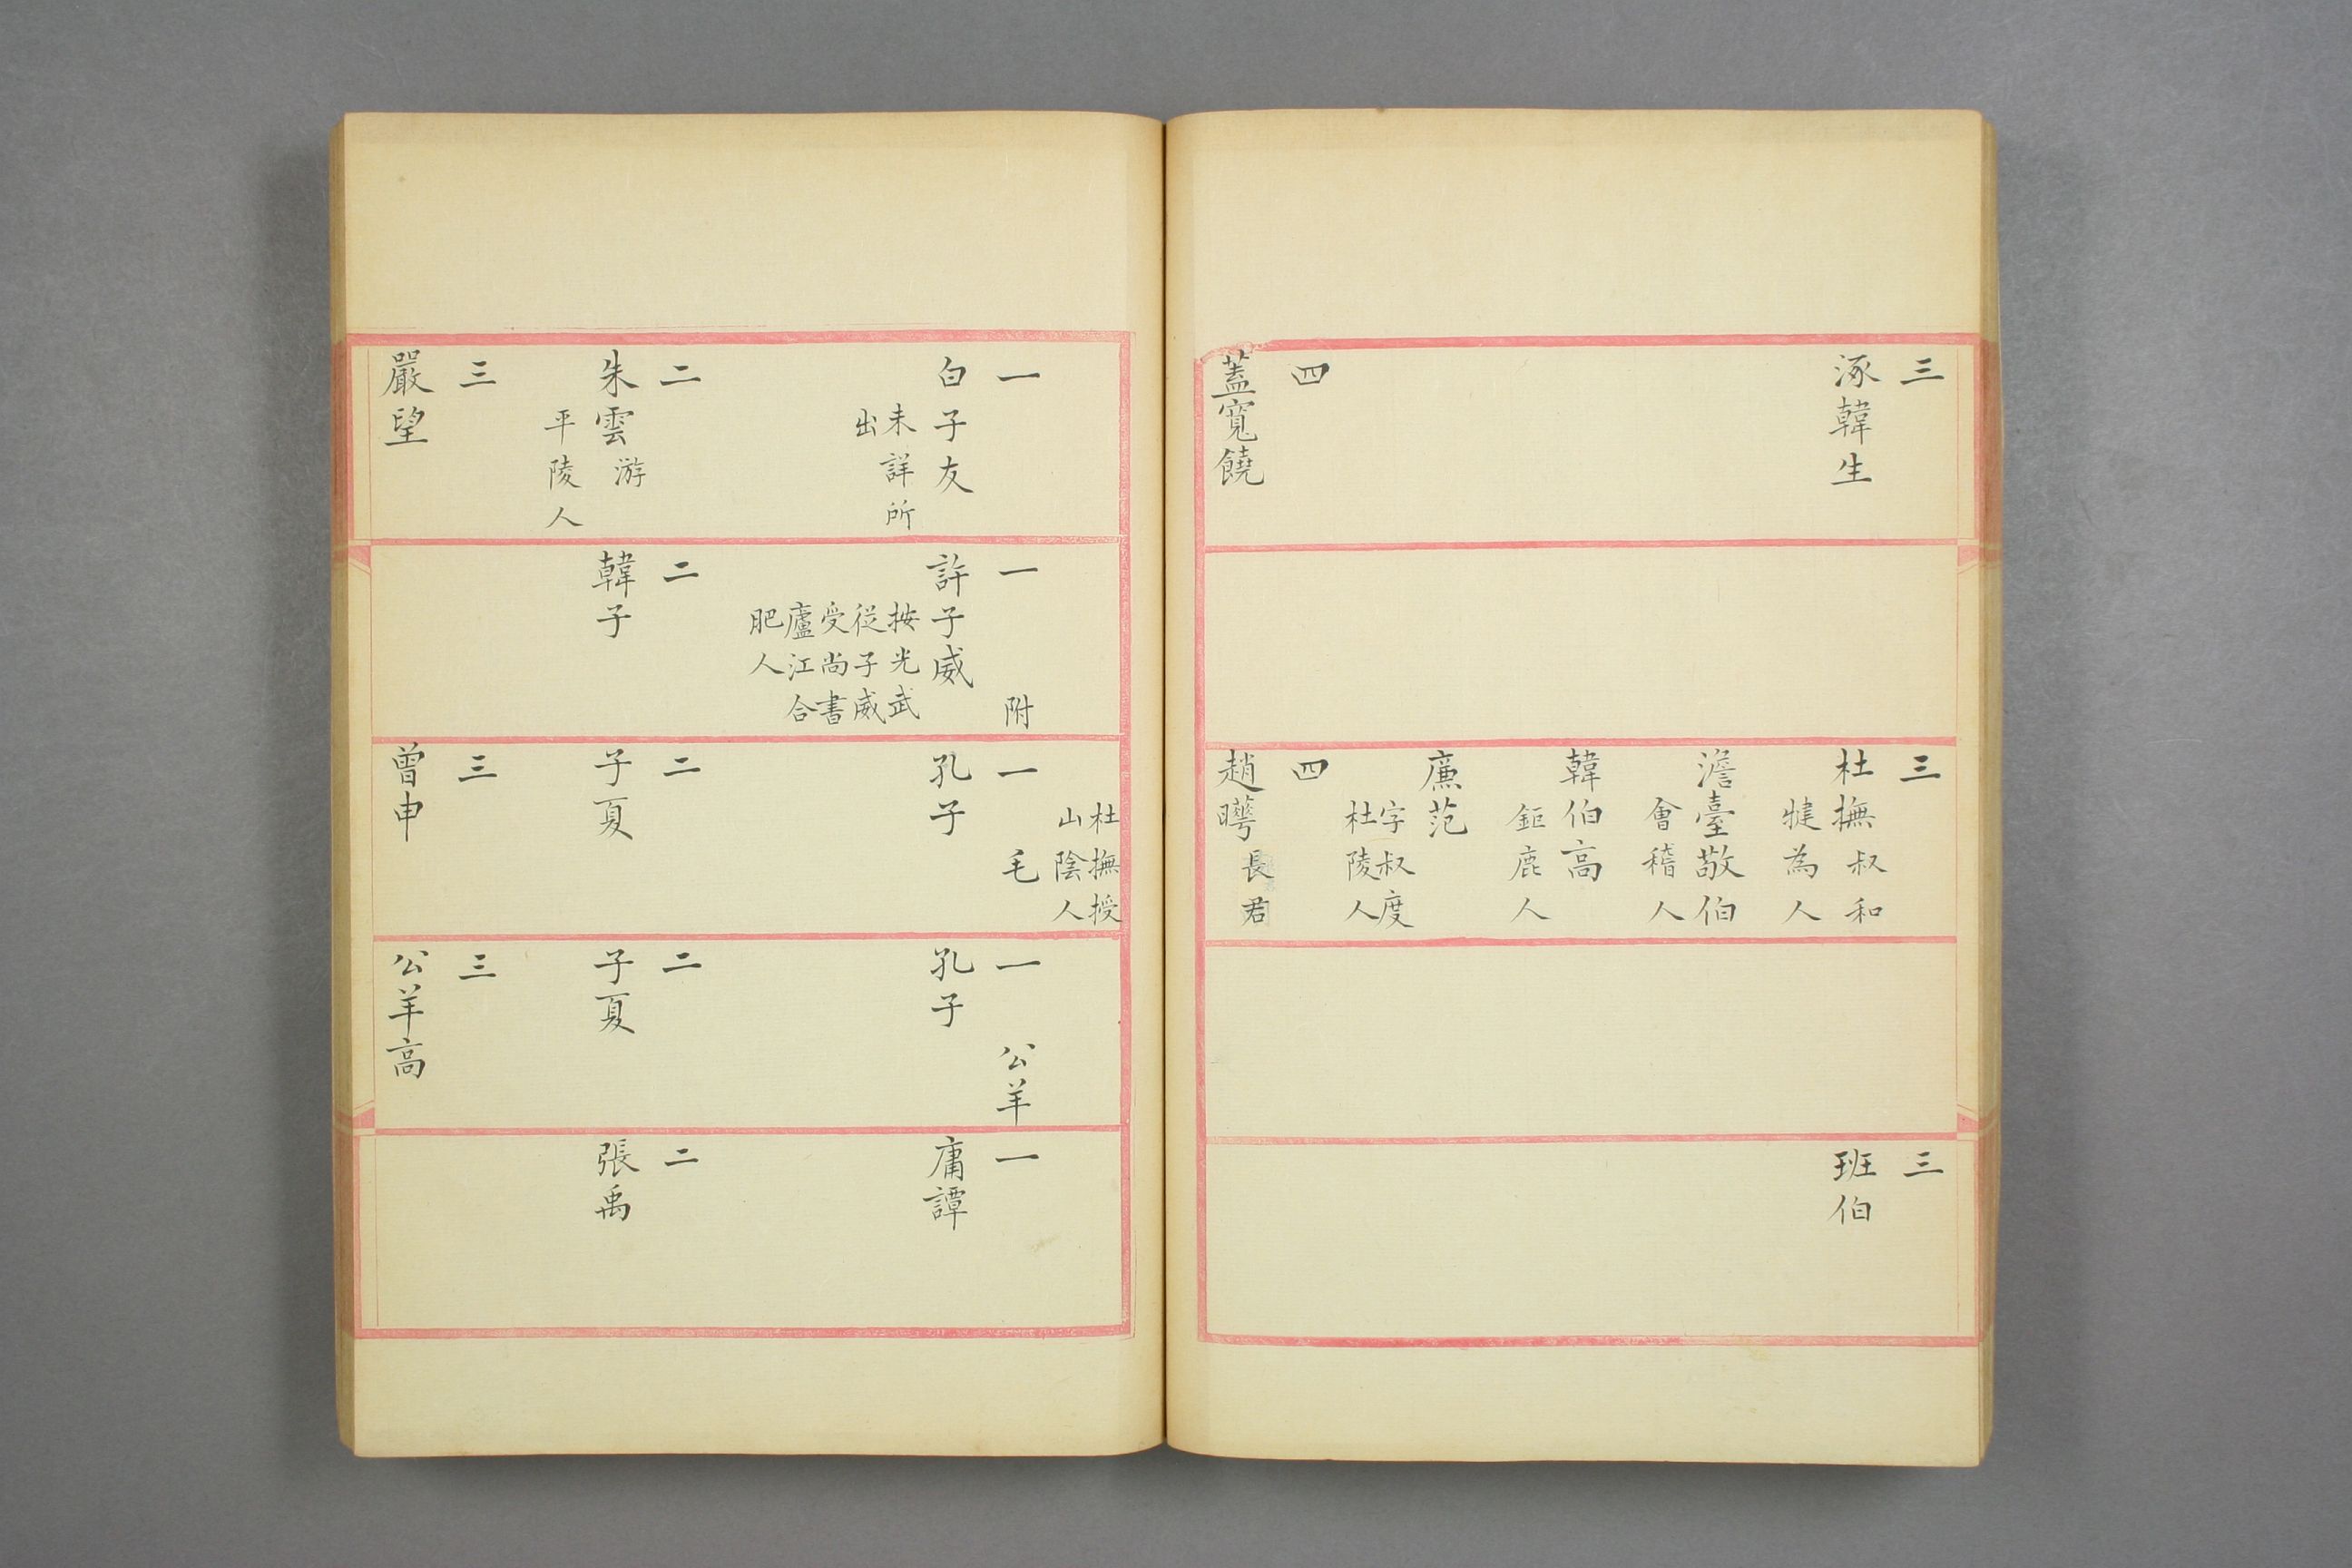 三
涿韓生
四
蓋寬饒
三
杜撫叔和
犍為人
澹臺敬伯
會稽人
韓伯高
鉅鹿人
廉范
字叔度
杜陵人
四
趙曄長君
三
班伯
一
白子友
未詳所
出
二
朱雲游
平陵人
三
嚴望
一 附
許子威
按光武
從子威
受尚書
廬江合
肥人
二
韓子
杜撫授
山陰人
一 毛
孔子
二
子夏
三
曾申
一 公羊
孔子
二
子夏
三
公羊高
一
庸譚
二
張禹